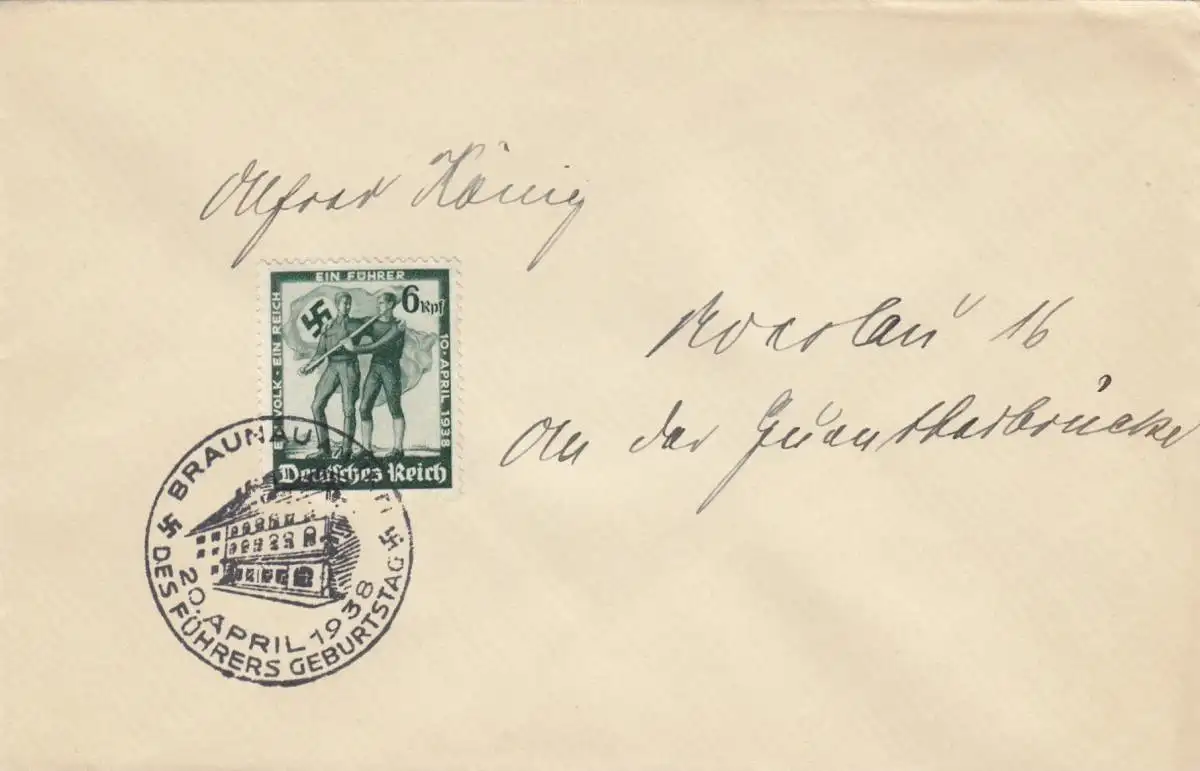 Alfred König
Breslau 16
An der Guentherbrücke
EIN VOLK · EIN REICH
EIN FÜHRER
10. APRIL 1938
6 Rpf
Deutsches Reich
BRAUNAU
20. APRIL 1938
DES FÜHRERS GEBURTSTAG